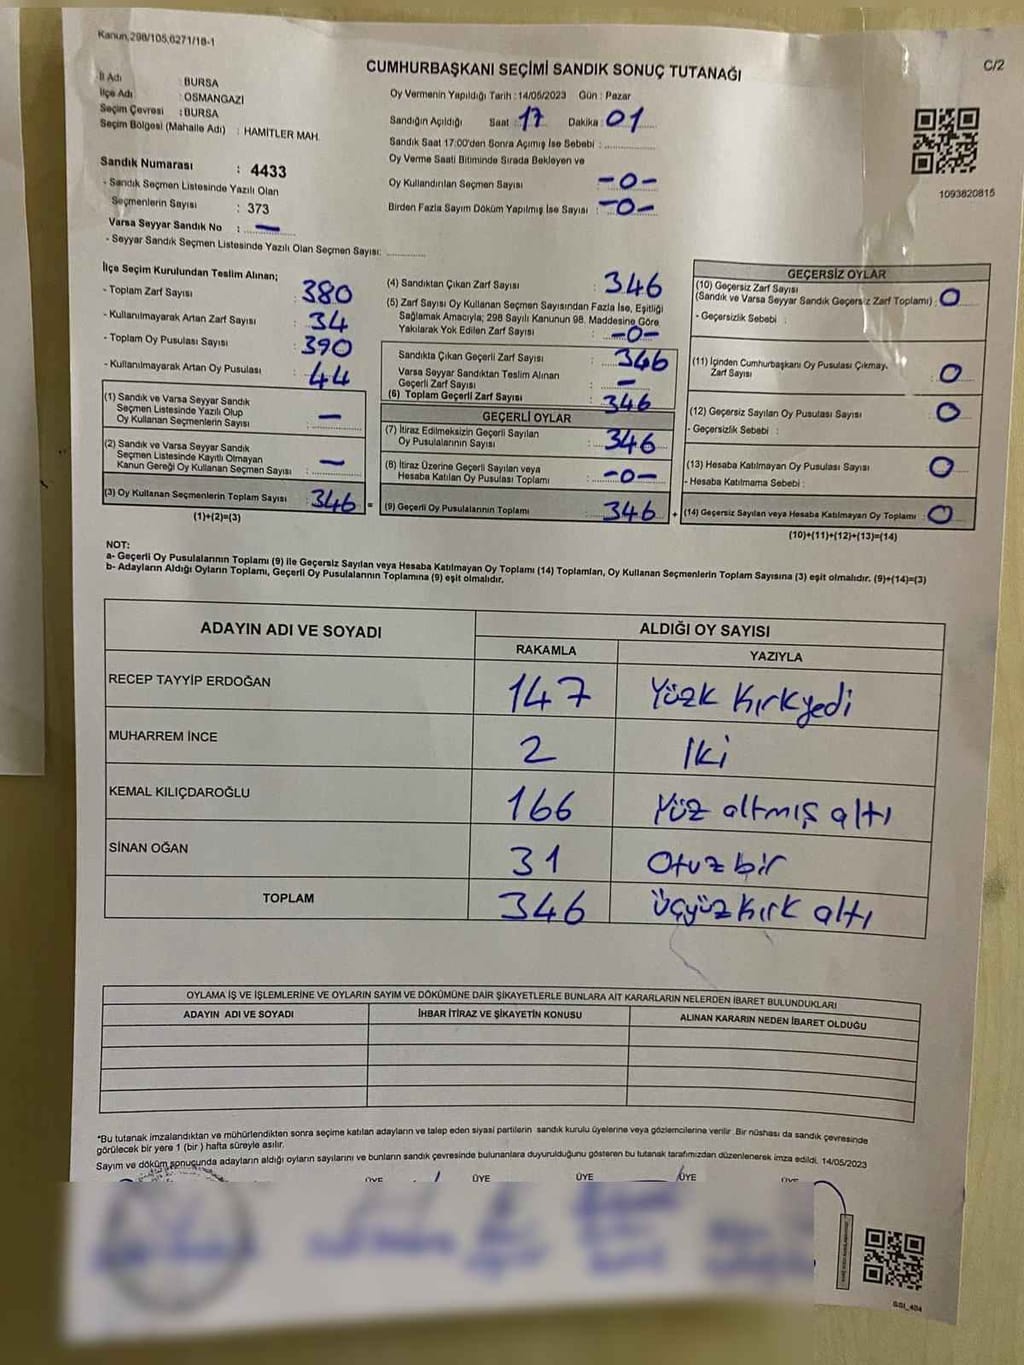 Kanun,298/105,6271/18-1
C/2
CUMHURBAŞKANI SEÇİMİ SANDIK SONUÇ TUTANAĞI
İl Adı : BURSA
İlçe Adı : OSMANGAZİ
Seçim Çevresi : BURSA
Seçim Bölgesi (Mahalle Adı) : HAMİTLER MAH.
Sandık Numarası : 4433
- Sandık Seçmen Listesinde Yazılı Olan
Seçmenlerin Sayısı : 373
Varsa Seyyar Sandık No : —
- Seyyar Sandık Seçmen Listesinde Yazılı Olan Seçmen Sayısı: ............
Oy Vermenin Yapıldığı Tarih : 14/05/2023 Gün : Pazar
Sandığın Açıldığı Saat : 17 Dakika : 01
Sandık Saat 17:00'den Sonra Açımış İse Sebebi : ................
Oy Verme Saati Bitiminde Sırada Bekleyen ve
Oy Kullandırılan Seçmen Sayısı : -0-
Birden Fazla Sayım Döküm Yapılmış İse Sayısı : -0-
1093820815
İlçe Seçim Kurulundan Teslim Alınan;
- Toplam Zarf Sayısı : 380
- Kullanılmayarak Artan Zarf Sayısı : 34
- Toplam Oy Pusulası Sayısı : 390
- Kullanılmayarak Artan Oy Pusulası : 44
(1) Sandık ve Varsa Seyyar Sandık
Seçmen Listesinde Yazılı Olup
Oy Kullanan Seçmenlerin Sayısı : —
(2) Sandık ve Varsa Seyyar Sandık
Seçmen Listesinde Kayıtlı Olmayan
Kanun Gereği Oy Kullanan Seçmen Sayısı : —
(3) Oy Kullanan Seçmenlerin Toplam Sayısı : 346 =
(1)+(2)=(3)
(4) Sandıktan Çıkan Zarf Sayısı : 346
(5) Zarf Sayısı Oy Kullanan Seçmen Sayısından Fazla İse, Eşitliği
Sağlamak Amacıyla; 298 Sayılı Kanunun 98. Maddesine Göre
Yakılarak Yok Edilen Zarf Sayısı : -0-
Sandıkta Çıkan Geçerli Zarf Sayısı : 346
Varsa Seyyar Sandıktan Teslim Alınan
Geçerli Zarf Sayısı : -
(6) Toplam Geçerli Zarf Sayısı : 346
GEÇERLİ OYLAR
(7) İtiraz Edilmeksizin Geçerli Sayılan
Oy Pusulalarının Sayısı : 346
(8) İtiraz Üzerine Geçerli Sayılan veya
Hesaba Katılan Oy Pusulası Toplamı : -0-
(9) Geçerli Oy Pusulalarının Toplamı : 346 +
GEÇERSİZ OYLAR
(10) Geçersiz Zarf Sayısı
(Sandık ve Varsa Seyyar Sandık Geçersiz Zarf Toplamı) : 0
- Geçersizlik Sebebi :
(11) İçinden Cumhurbaşkanı Oy Pusulası Çıkmay.
Zarf Sayısı : 0
(12) Geçersiz Sayılan Oy Pusulası Sayısı : 0
- Geçersizlik Sebebi :
(13) Hesaba Katılmayan Oy Pusulası Sayısı : 0
- Hesaba Katılmama Sebebi :
(14) Geçersiz Sayılan veya Hesaba Katılmayan Oy Toplamı : 0
(10)+(11)+(12)+(13)=(14)
NOT:
a- Geçerli Oy Pusulalarının Toplamı (9) ile Geçersiz Sayılan veya Hesaba Katılmayan Oy Toplamı (14) Toplamları, Oy Kullanan Seçmenlerin Toplam Sayısına (3) eşit olmalıdır. (9)+(14)=(3)
b- Adayların Aldığı Oyların Toplamı, Geçerli Oy Pusulalarının Toplamına (9) eşit olmalıdır.
ADAYIN ADI VE SOYADI
ALDIĞI OY SAYISI
RAKAMLA YAZIYLA
RECEP TAYYİP ERDOĞAN 147 Yüzk Kırkyedi
MUHARREM İNCE 2 İki
KEMAL KILIÇDAROĞLU 166 Yüz altmış altı
SİNAN OĞAN 31 Otuz bir
TOPLAM 346 Üçyüz kırk altı
OYLAMA İŞ VE İŞLEMLERİNE VE OYLARIN SAYIM VE DÖKÜMÜNE DAİR ŞİKAYETLERLE BUNLARA AİT KARARLARIN NELERDEN İBARET BULUNDUKLARI
ADAYIN ADI VE SOYADI İHBAR İTİRAZ VE ŞİKAYETİN KONUSU ALINAN KARARIN NEDEN İBARET OLDUĞU
*Bu tutanak imzalandıktan ve mühürlendikten sonra seçime katılan adayların ve talep eden siyasi partilerin sandık kurulu üyelerine veya gözlemcilerine verilir. Bir nüshası da sandık çevresinde
görülecek bir yere 1 (bir) hafta süreyle asılır.
Sayım ve döküm sonucunda adayların aldığı oyların sayılarını ve bunların sandık çevresinde bulunanlara duyurulduğunu gösteren bu tutanak tarafımızdan düzenlenerek imza edildi. 14/05/2023
ÜYE ÜYE ÜYE ÜYE ÜYE